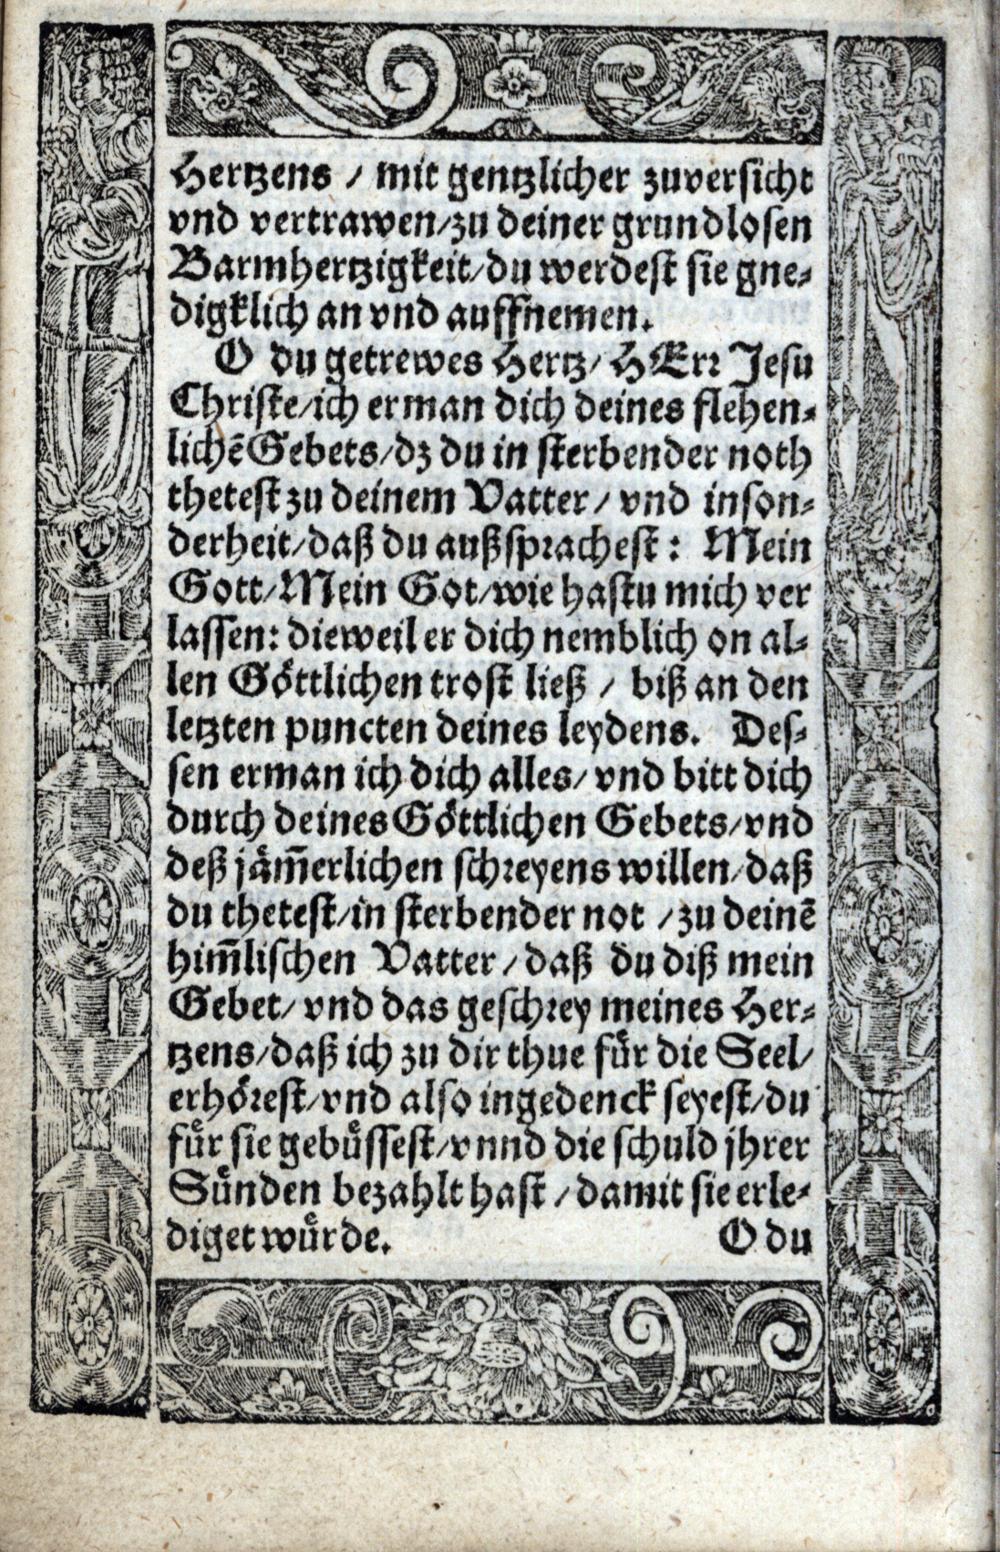 Hertzens / mit gentzlicher zuversicht
vnd vertrawen/zu deiner grundlosen
Barmhertzigkeit/du werdest sie gne⸗
digklich an vnd auffnemen.
O du getrewes Hertz/HErr Jesu
Christe/ich erman dich deines flehen⸗
lichē Gebets/dz du in sterbender noth
thetest zu deinem Vatter / vnd inson⸗
derheit/daß du außsprachest: Mein
Gott/Mein Got/wie hastu mich ver
lassen: dieweil er dich nemblich on al⸗
len Göttlichen trost ließ / biß an den
letzten puncten deines leydens. Des⸗
sen erman ich dich alles/vnd bitt dich
durch deines Göttlichen Gebets/vnd
deß jäm̄erlichen schreyens willen/daß
du thetest/in sterbender not /zu deinē
him̄lischen Vatter / daß du diß mein
Gebet/vnd das geschrey meines Her⸗
tzens/daß ich zu dir thue für die Seel/
erhörest/vnd also ingedenck seyest/du
für sie gebüssest/vnnd die schuld jhrer
Sünden bezahlt hast /damit sie erle⸗
diget würde. O du